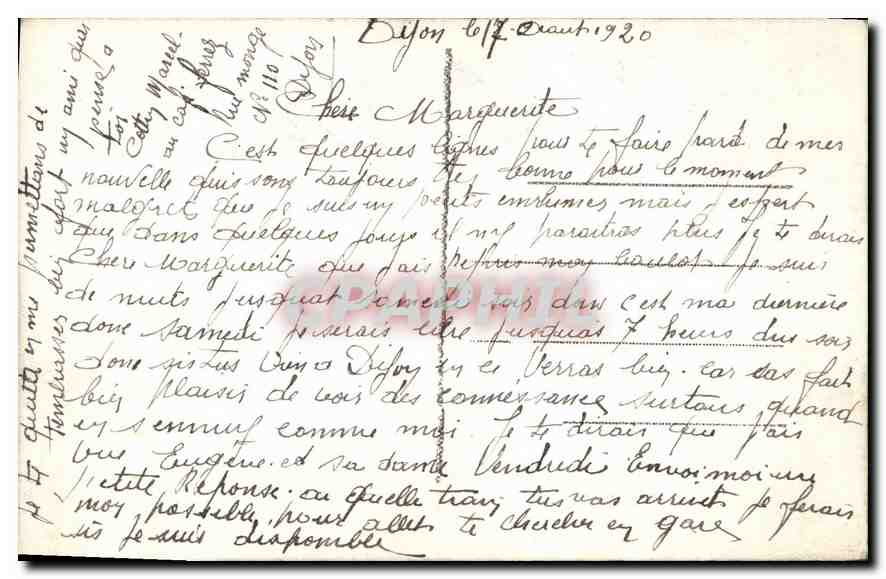 Dijon le 17 Aout 1920
Chere Marguerite
C'est quelques lignes pour te faire pard de mes
nouvelle qui sont toujours bonne pour le moment
malgret que je suis petits enrhumer mais j'espert
que dans quelques jours il n'y paraitras plus Je te dirais
Chere Marguerite que j'ais repris moy boulot je suis
de nuits jusquat samedi soir dans c'est ma dernière
donc samedi je serais libre jusquas 7 heurs du soir
donc si tus viens a Dijon en ce verras biey. car sas fait
biey plaisir de voir des connéssance surtous quand
ey sennuy comme moi. Je te dirais que j'ais
vue Eugène et sa dame Vendredi Envoi moi une
petite Réponse. a quelle traiy tus vas arriver je ferais
moy possible pour allet te chercher ey gare
sis je suis disponible
Je te quitte ey me permettans de
t'embrasser biey fort ty ami qui
pense a
toi
Cottey Marcel
au café ferrez
Rue monge
N° 110
Dijon
CPAPHIL